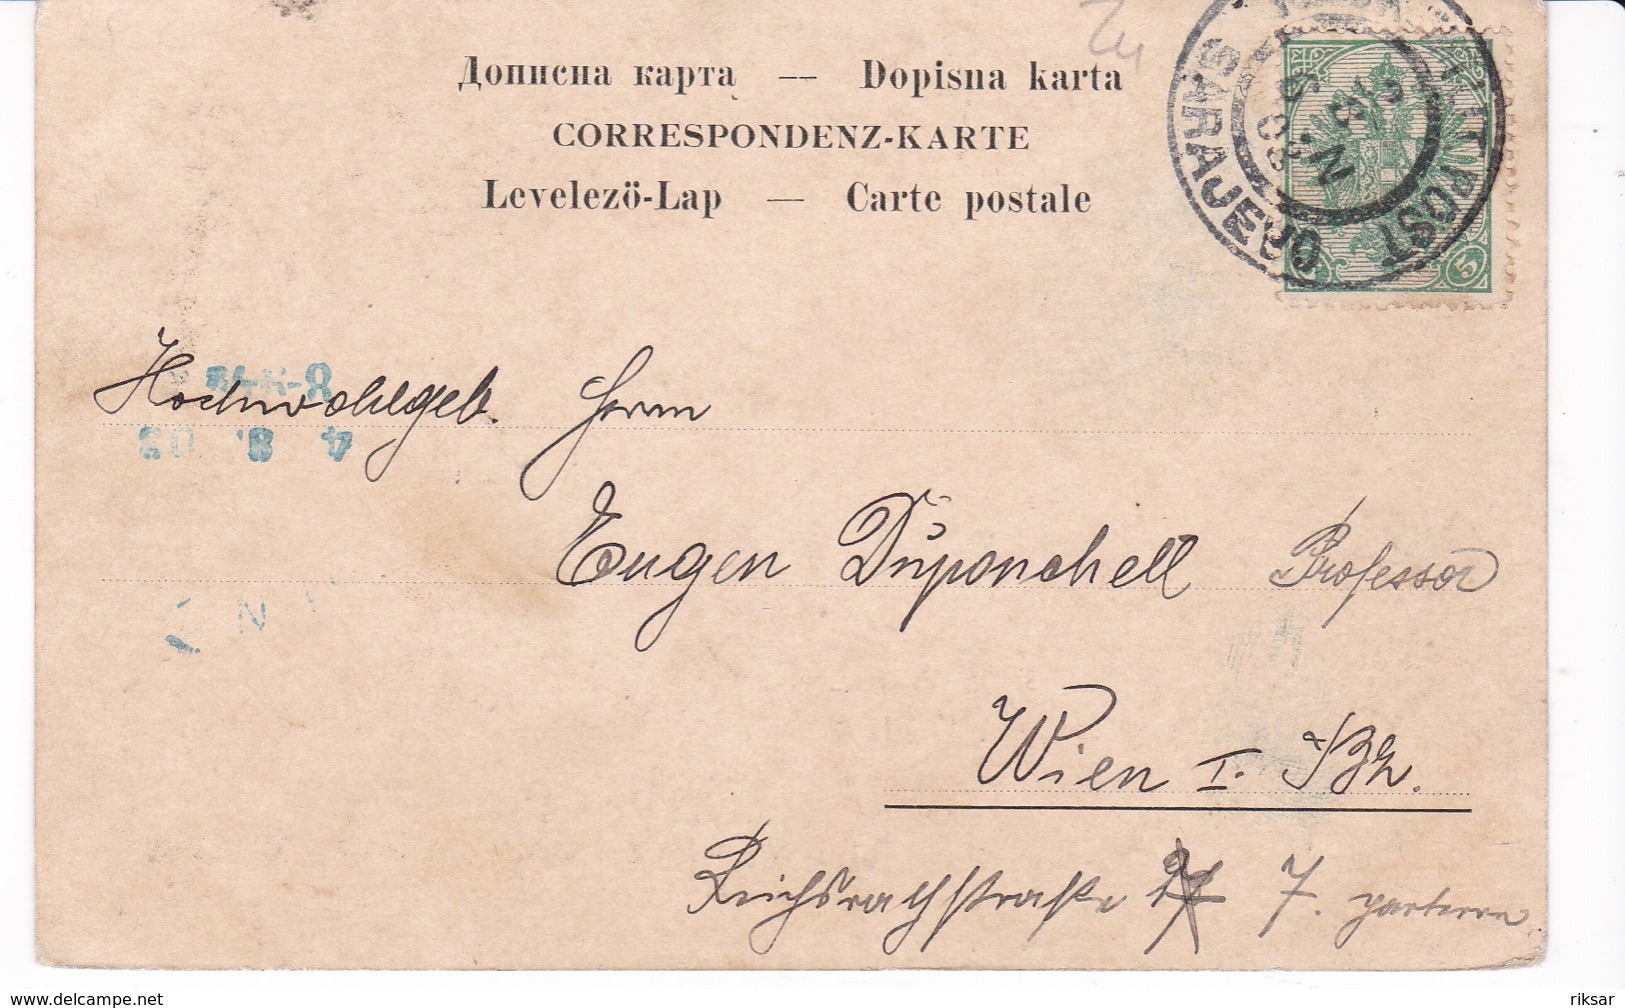 Дописна карта — Dopisna karta
CORRESPONDENZ-KARTE
Levelező-Lap — Carte postale
SARAJEVO
5
Hochwohlgeb. Herrn
8
4 8. 03
Eugen Düponchell Professor
N
Wien I. Bz.
Reichsrathstraße 7. parterre
www.delcampe.net
riksar